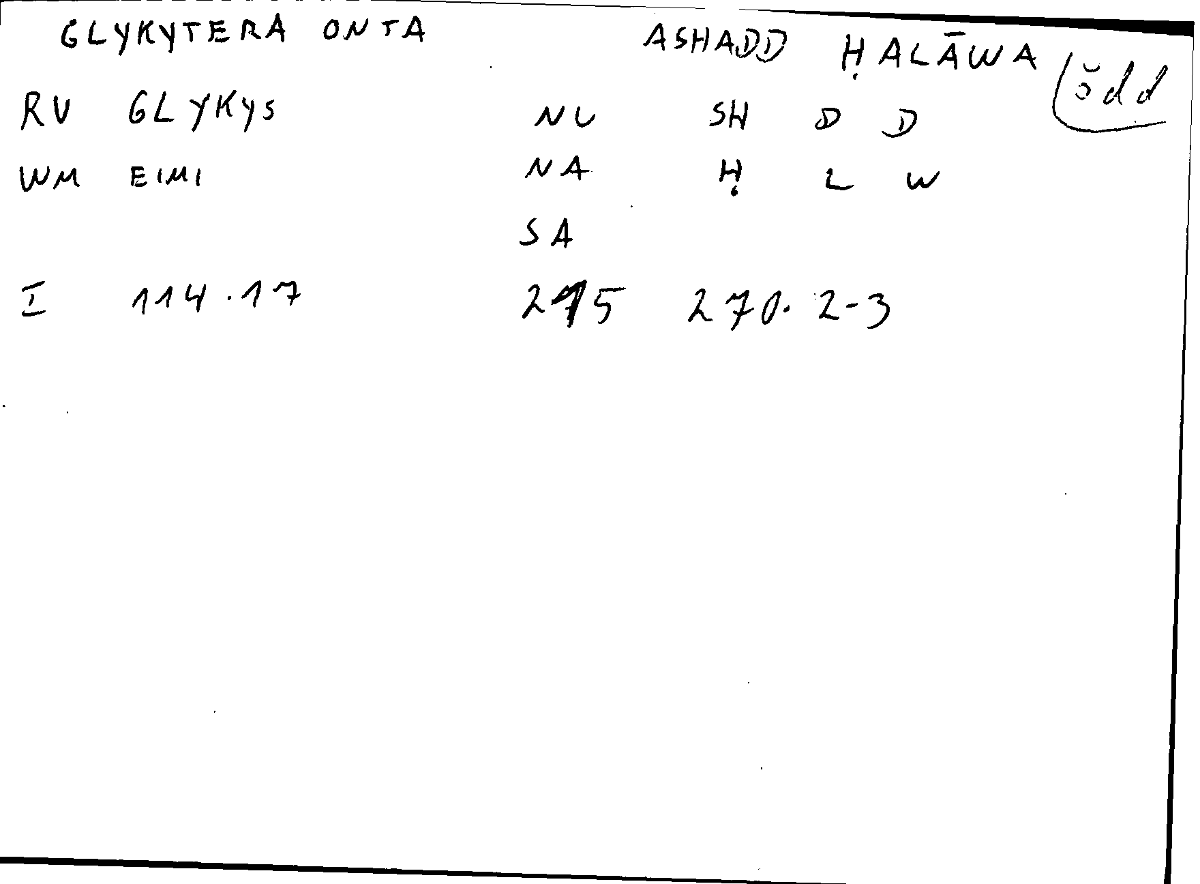 GLYKYTERA ONTA ASHADD ḤALĀWA šdd
RV GLYKYS NU SH D D
WM EIMI NA Ḥ L W
SA
I 114.17 215 270. 2-3